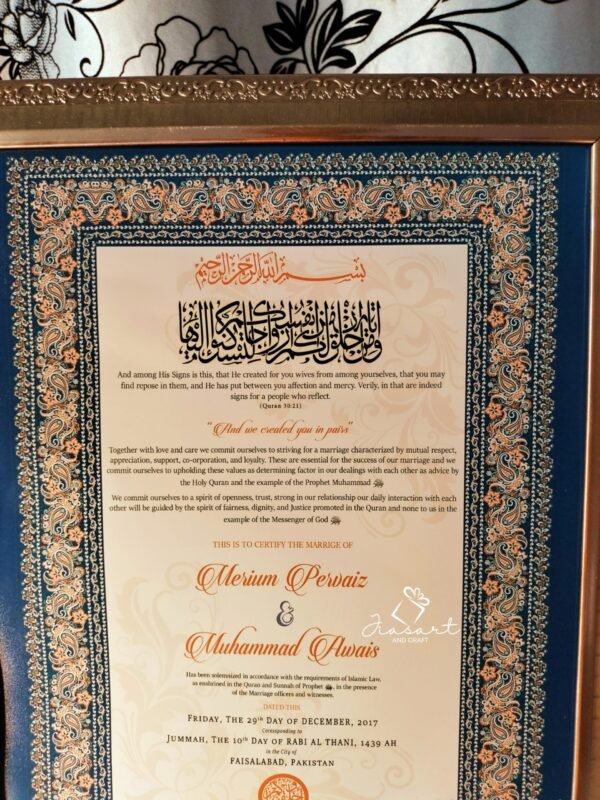 بسم الله الرحمن الرحيم
ومن آياته أن خلق لكم من أنفسكم أزواجا لتسكنوا إليها
And among His Signs is this, that He created for you wives from among yourselves, that you may
find repose in them, and He has put between you affection and mercy. Verily, in that are indeed
signs for a people who reflect.
(Quran 30:21)
"And we created you in pairs"
Together with love and care we commit ourselves to striving for a marriage characterized by mutual respect,
appreciation, support, co-orporation, and loyalty. These are essential for the success of our marriage and we
commit ourselves to upholding these values as determining factor in our dealings with each other as advice by
the Holy Quran and the example of the Prophet Muhammad ﷺ
We commit ourselves to a spirit of openness, trust, strong in our relationship our daily interaction with each
other will be guided by the spirit of fairness, dignity, and Justice promoted in the Quran and none to us in the
example of the Messenger of God ﷺ
THIS IS TO CERTIFY THE MARRIGE OF
Merium Pervaiz
&
Muhammad Awais
Jiasart
AND CRAFT
Has been solemnized in accordance with the requirements of Islamic Law,
as enshrined in the Quran and Sunnah of Prophet ﷺ, in the presence
of the Marriage officers and witnesses.
DATED THIS
FRIDAY, THE 29th DAY OF DECEMBER, 2017
Corresponding to
JUMMAH, THE 10th DAY OF RABI AL THANI, 1439 AH
in the City of
FAISALABAD, PAKISTAN